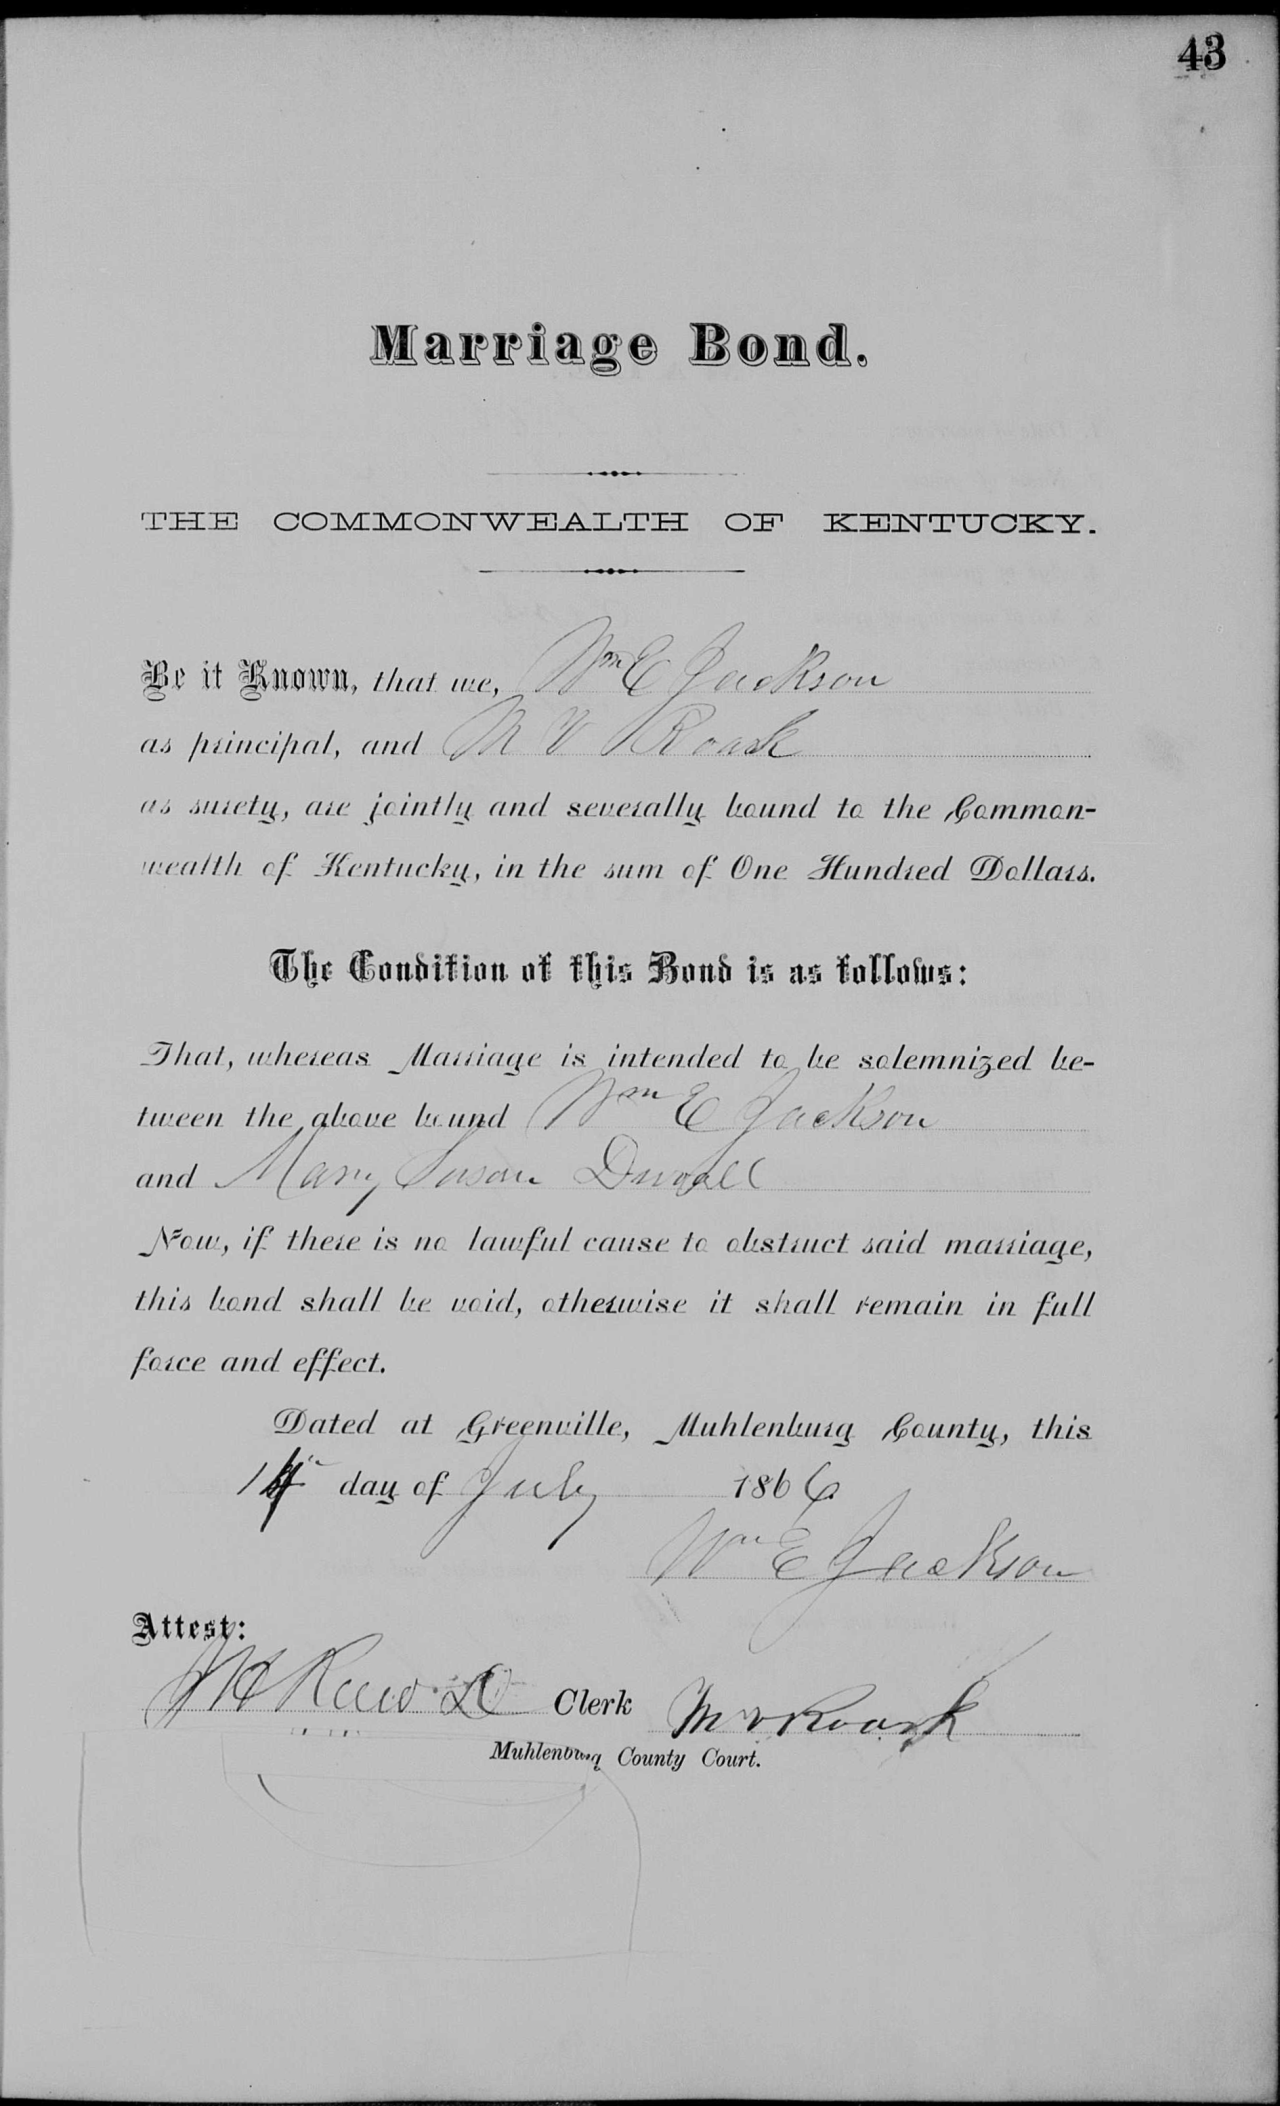 43
Marriage Bond.
THE COMMONWEALTH OF KENTUCKY.
Be it Known, that we, Wm E Jackson
as principal, and M V Roark
as surety, are jointly and severally bound to the Common-
wealth of Kentucky, in the sum of One Hundred Dollars.
The Condition of this Bond is as follows:
That, whereas Marriage is intended to be solemnized be-
tween the above bound Wm E Jackson
and Mary Susan Duvall
Now, if there is no lawful cause to obstruct said marriage,
this bond shall be void, otherwise it shall remain in full
force and effect.
Dated at Greenville, Muhlenburg County, this
14 day of July 1866
Wm E Jackson
Attest:
Clerk M V Roark
Muhlenburg County Court.